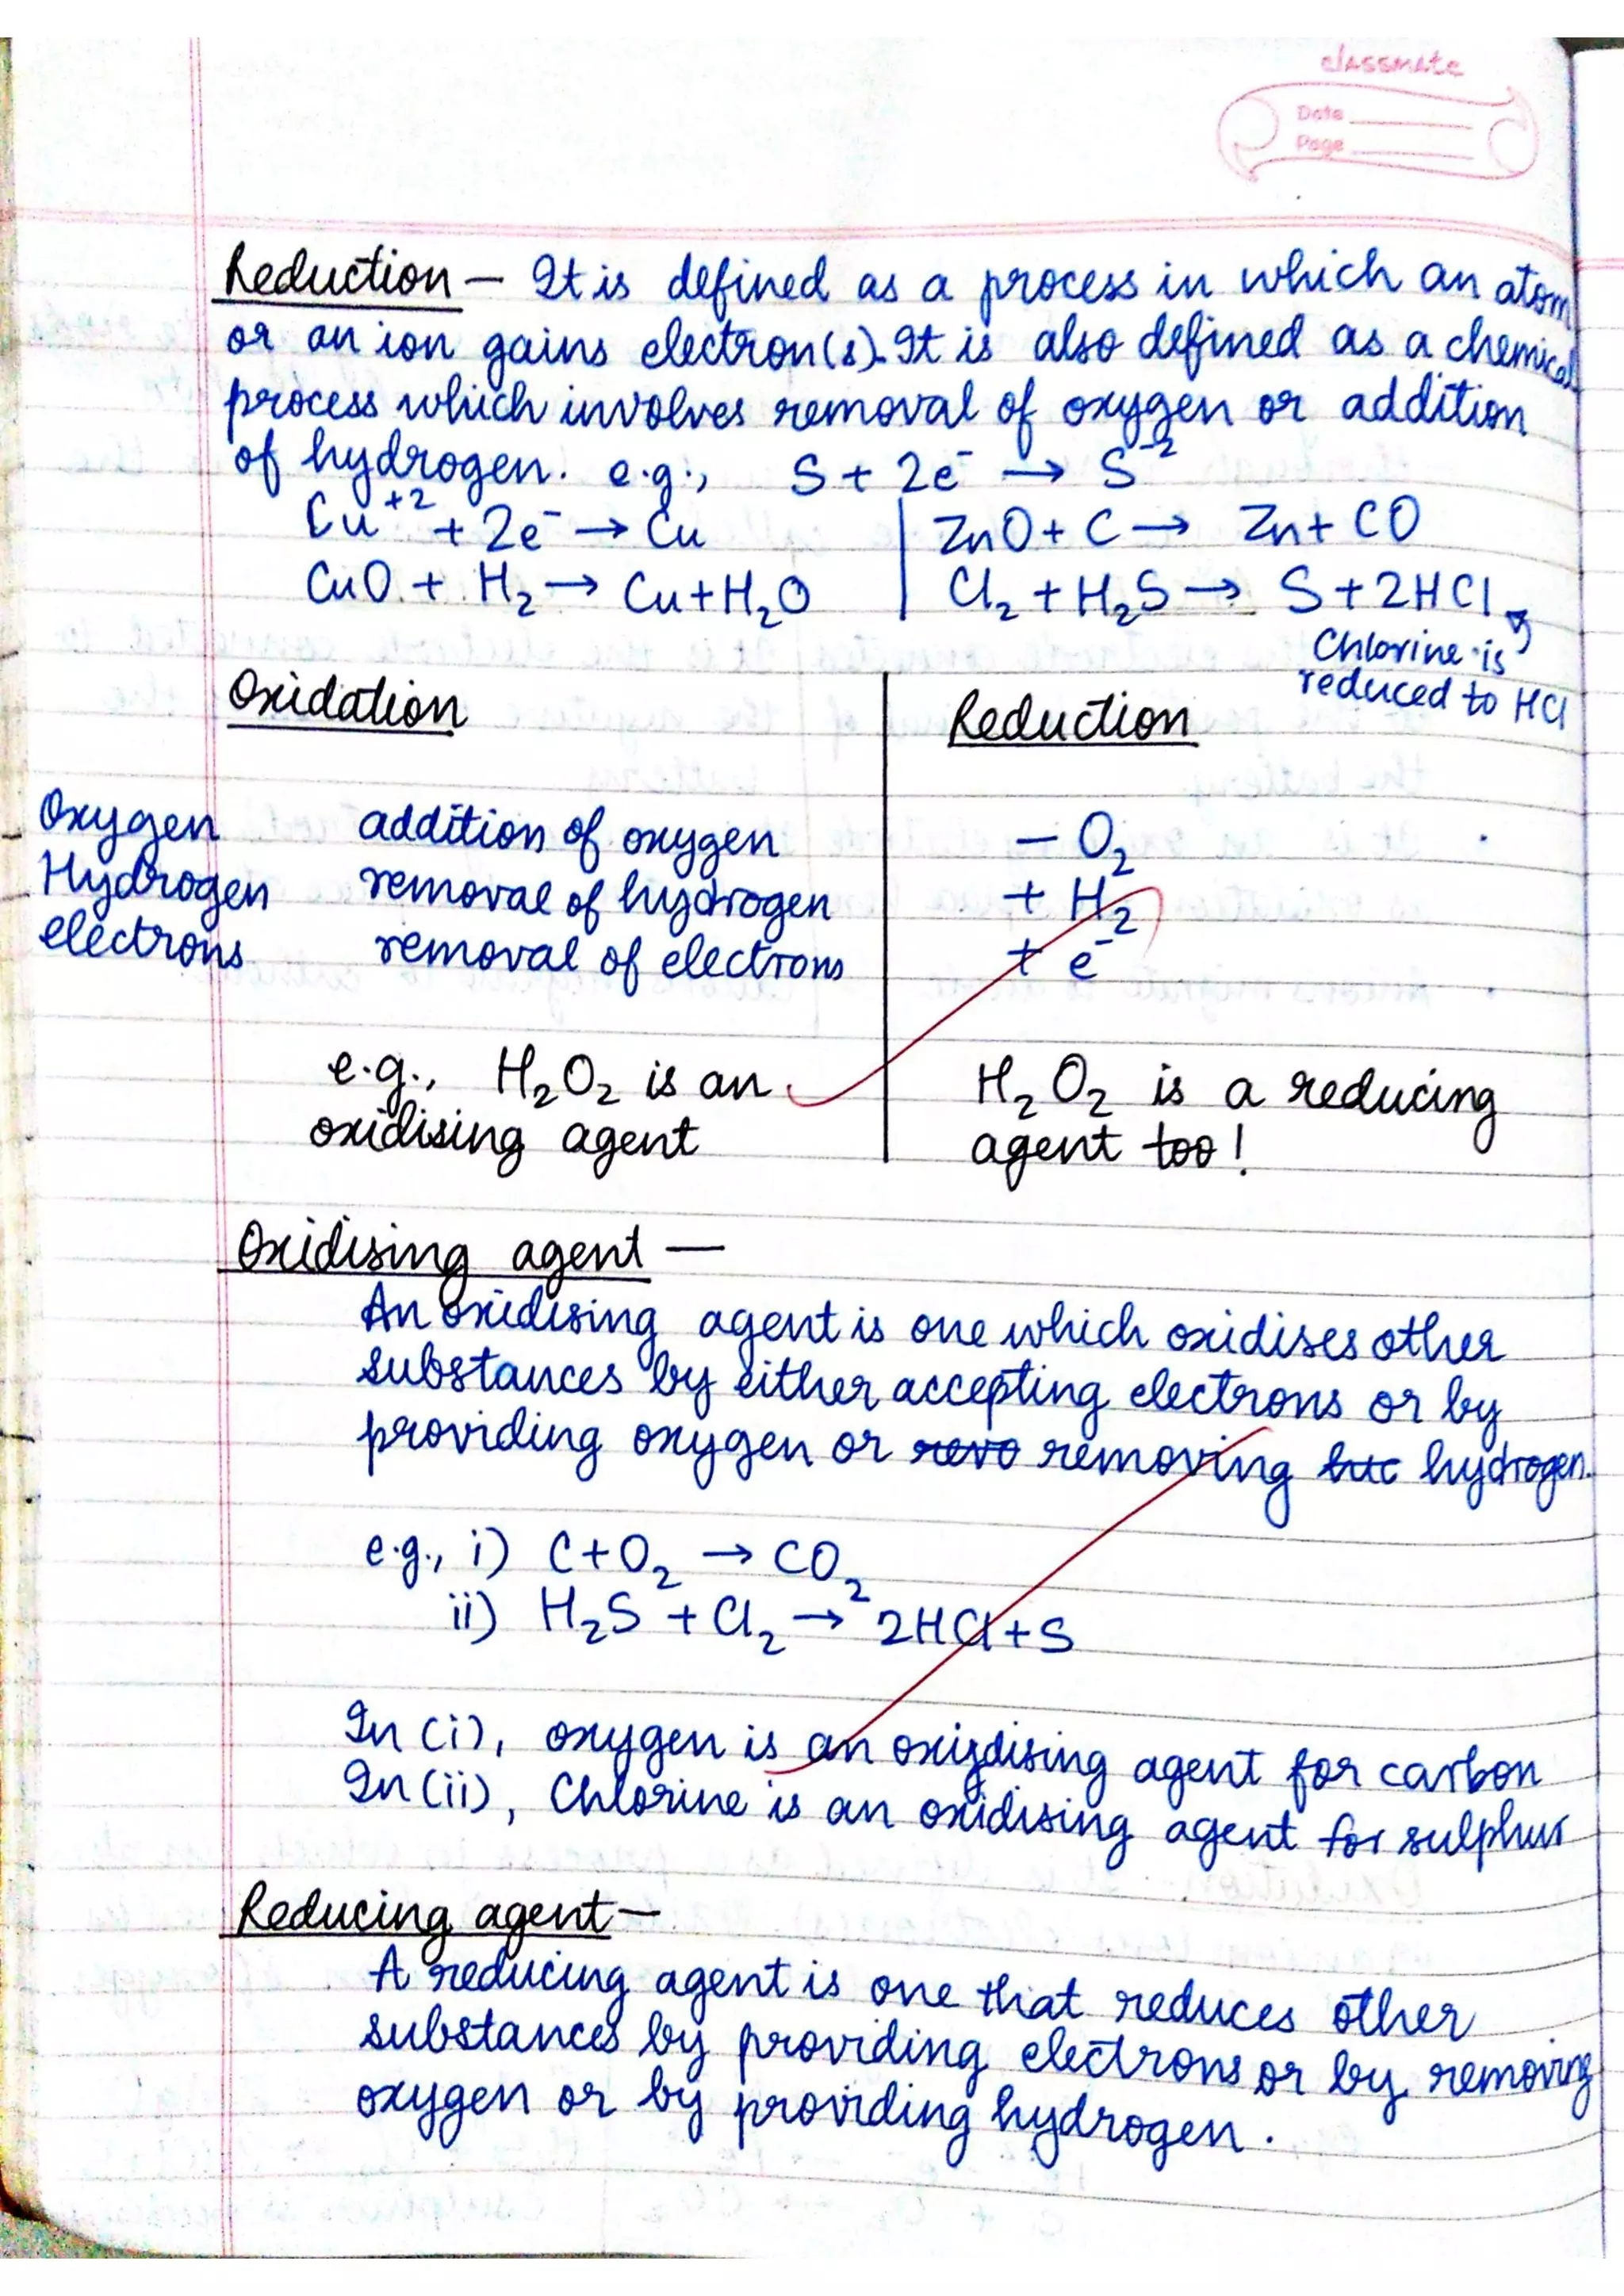 classmate
Date
Page
Reduction — It is defined as a process in which an atom
or an ion gains electron(s). It is also defined as a chemical
process which involves removal of oxygen or addition
of hydrogen. e.g., S + 2e⁻ → S⁻²
Cu⁺² + 2e⁻ → Cu | ZnO + C → Zn + CO
CuO + H₂ → Cu + H₂O | Cl₂ + H₂S → S + 2HCl
Chlorine is
reduced to HCl
Oxidation Reduction
Oxygen addition of oxygen − O₂
Hydrogen removal of hydrogen + H₂
electrons removal of electrons + e⁻
e.g., H₂O₂ is an H₂O₂ is a reducing
oxidising agent agent too!
Oxidising agent —
An oxidising agent is one which oxidises other
substances by either accepting electrons or by
providing oxygen or removing hydrogen.
e.g., i) C + O₂ → CO₂
ii) H₂S + Cl₂ → 2HCl + S
In (i), oxygen is an oxidising agent for carbon
In (ii), Chlorine is an oxidising agent for sulphur
Reducing agent —
A reducing agent is one that reduces other
substances by providing electrons or by removing
oxygen or by providing hydrogen.